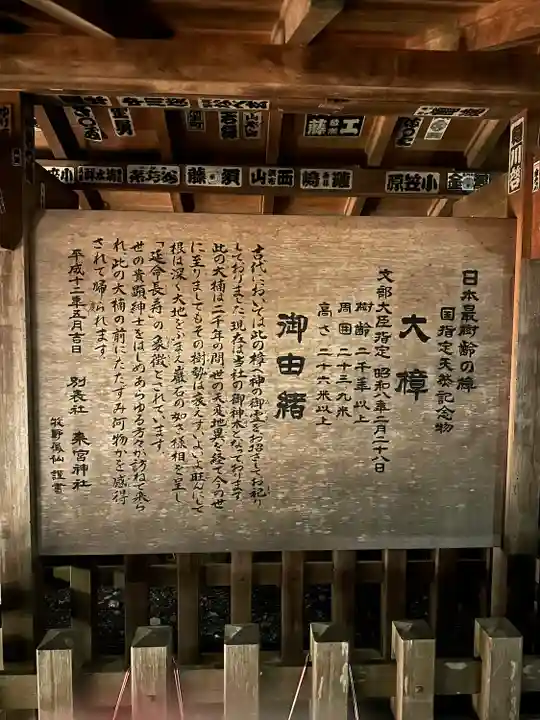 日本最樹齢の樟
国指定天然記念物
大樟
文部大臣指定 昭和八年二月二十八日
樹齢 二千年以上
周囲 二十三、九米
高さ 二十六米以上
御由緒
古代においては此の樟へ神の御霊をお招きしてお祀り
しておりました 現在は当社の御神木となっております
此の大楠は二千年の間世の天変地異を経て今の世
に至りましてもその樹勢は衰えずいよいよ旺んにして
根は深く大地をふまえ巌石の如き様相を呈し
「延命長寿」の象徴とされています
世の貴顕紳士をはじめあらゆる方々が訪ねて来ら
れ此の大楠の前にたたずみ何物かを感得
されて帰られます
平成十二年五月吉日
別表社 来宮神社
牧野俊仙 謹書
工藤
小笠原
西山
須藤